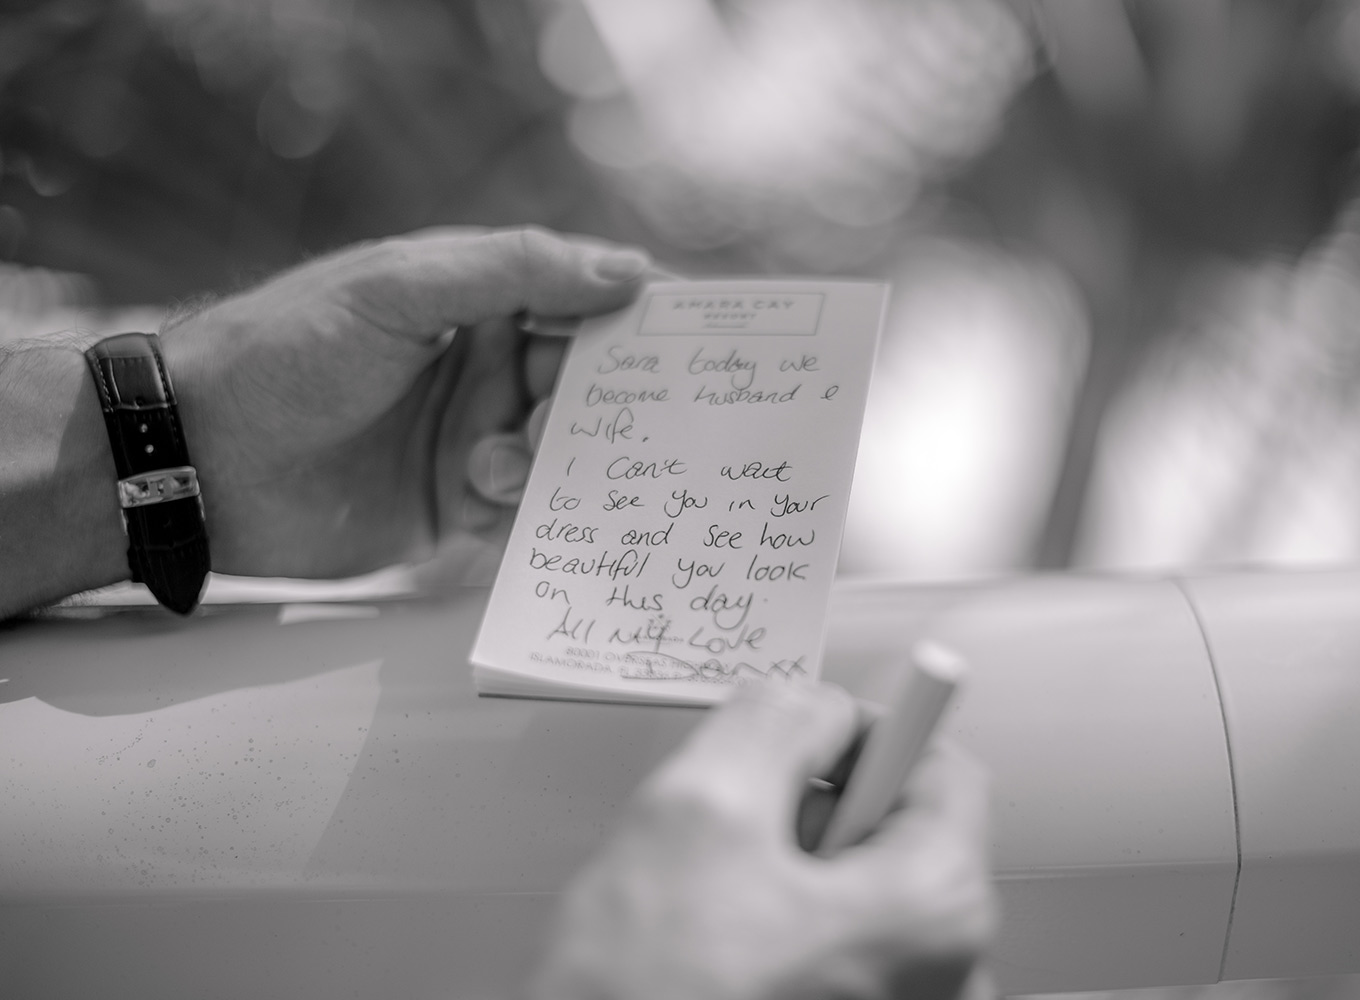 AMARA CAY
RESORT
Sara today we
become Husband &
wife.
I Can't wait
to see you in your
dress and see how
beautiful you look
on this day.
All my Love
ISLAMORADA
xx